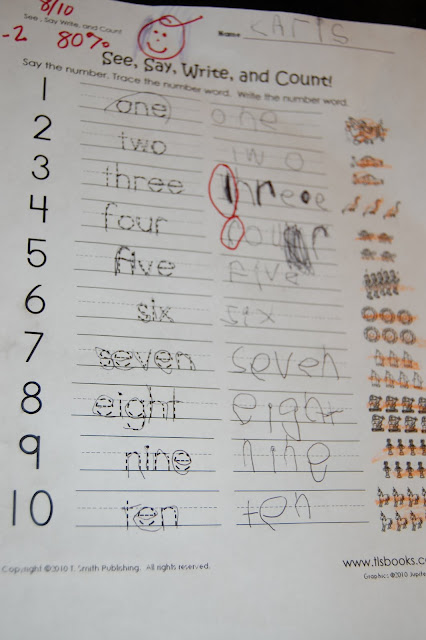 8/10
See, Say Write, and Count
-2 80%
Name KARIS
See, Say, Write, and Count!
Say the number. Trace the number word. Write the number word.
1 one one
2 two two
3 three threee
4 four four
5 five five
6 six six
7 seven seven
8 eight eight
9 nine nine
10 ten ten
Copyright ©2010 T. Smith Publishing. All rights reserved.
www.tlsbooks.c
Graphics ©2010 Jupite